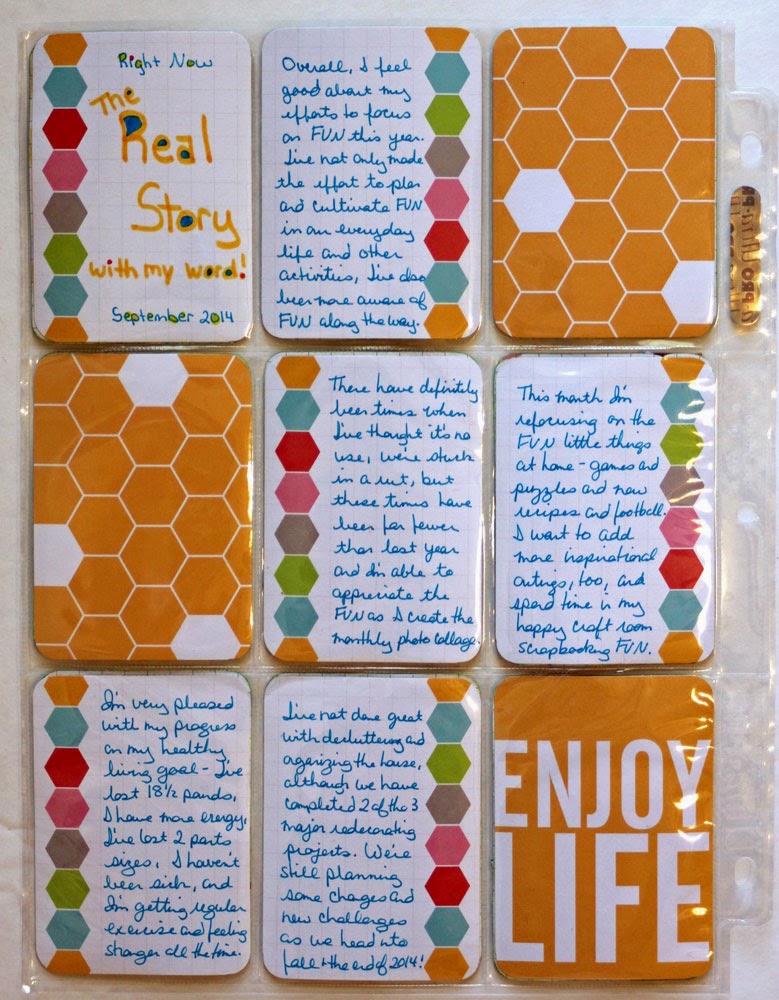 Right Now
The
Real
Story
with my word!
September 2014
Overall, I feel
good about my
efforts to focus
on FUN this year.
I've not only made
the effort to plan
and cultivate FUN
in our everyday
life and other
activities, I've also
been more aware of
FUN along the way.
There have definitely
been times when
I've thought it's no
use, we're stuck
in a rut, but
these times have
been far fewer
than last year
and I'm able to
appreciate the
FUN as I create the
monthly photo collage.
This month I'm
refocusing on the
FUN little things
at home - games and
puzzles and new
recipes and football.
I want to add
more inspirational
outings, too, and
spend time in my
happy craft room
scrapbooking FUN.
I'm very pleased
with my progress
on my healthy
living goal - I've
lost 18 1/2 pounds,
I have more energy,
I've lost 2 pants
sizes, I haven't
been sick, and
I'm getting regular
exercise and feeling
stronger all the time.
I've not done great
with decluttering and
organizing the house,
although we have
completed 2 of the 3
major redecorating
projects. We're
still planning
some changes and
new challenges
as we head into
fall + the end of 2014!
ENJOY
LIFE
PRO Ultra-PRO